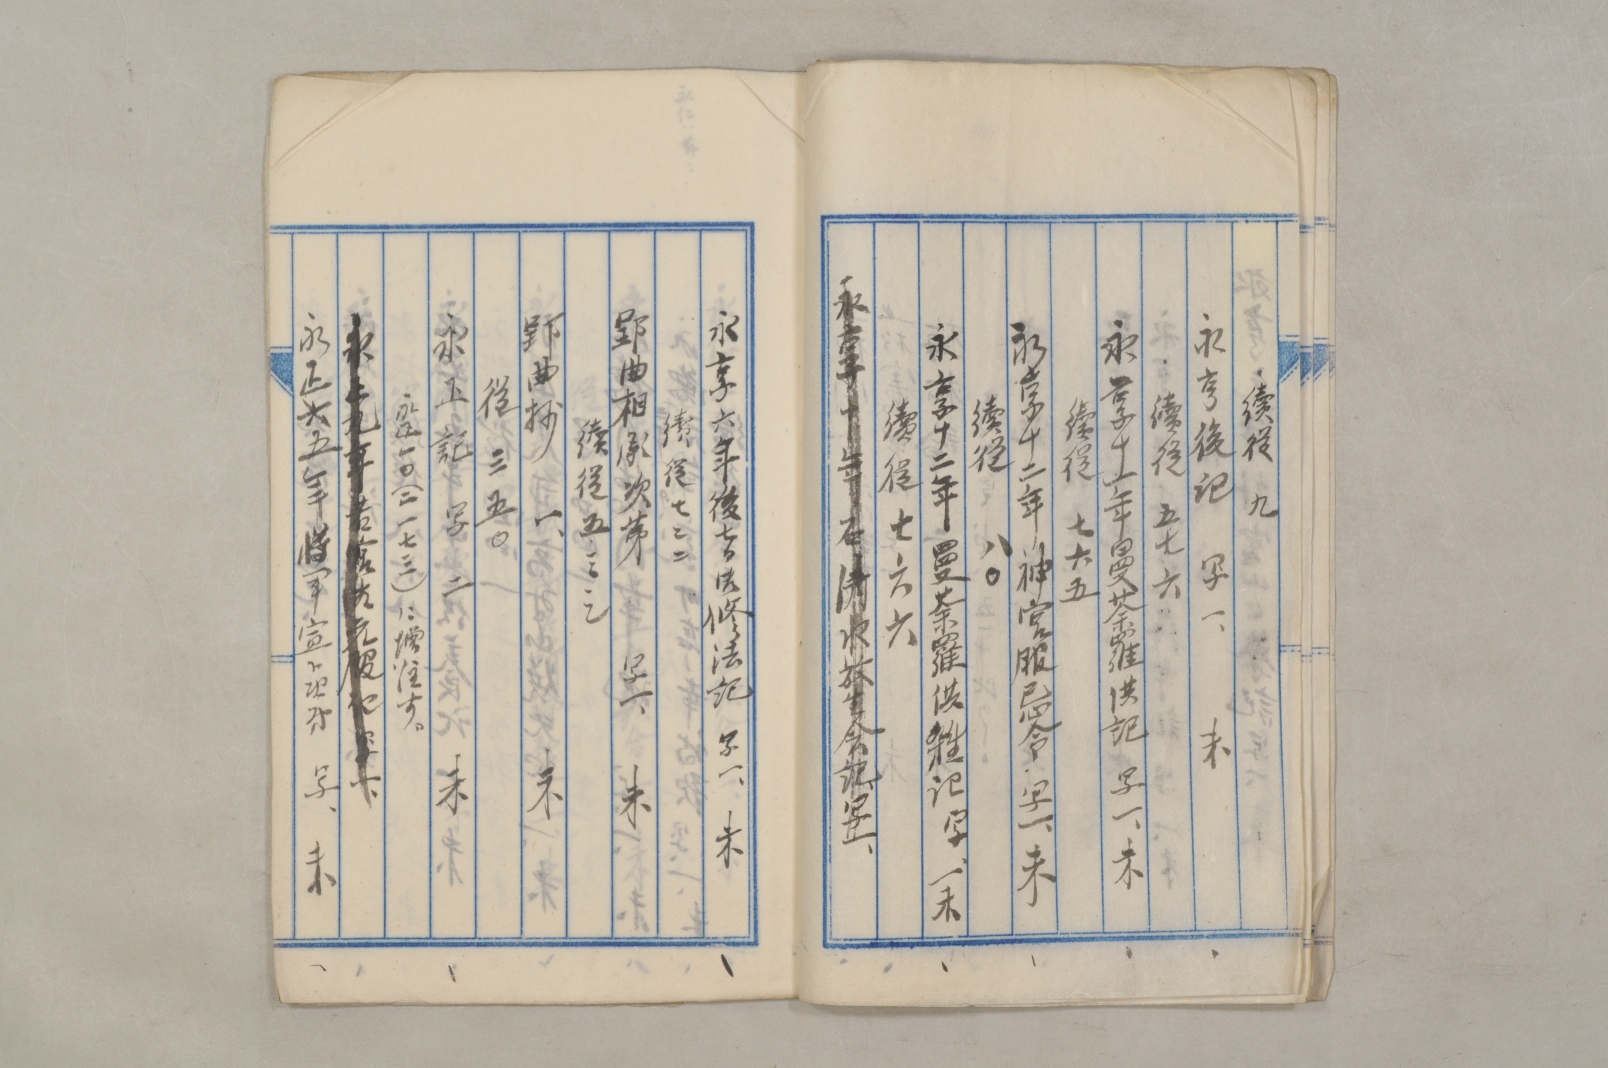 續從 九
永享後記 写一、 未
續從 五七六
永享十一年曼荼羅供記 写一、未
續從 七六五
永享十二年神宮服忌令 写一、未
續從 八〇
永享十二年曼荼羅供雜記 写一、未
續從 七六六
永享十年石清水放生会記 写一、
永享六年後七日法修法記 写一、未
續從 七二二
郢曲相承次第 写一、 未
續從 五三三
郢曲抄 一、 未
從 三五〇
永正記 写二 未
増注す。
永正九年 元服記 写一、
永正 五年将軍宣下 写、 未